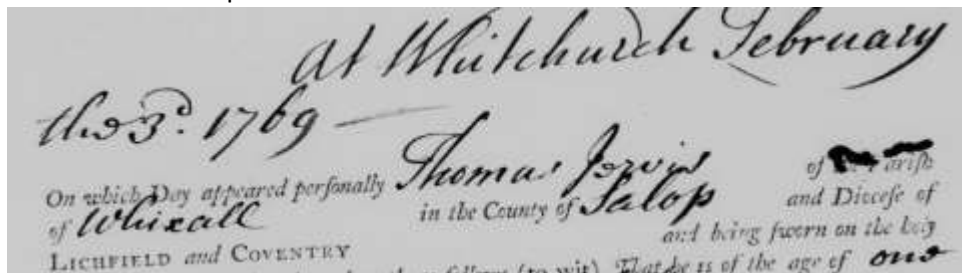 At Whitchurch February
the 3d. 1769
On which Day appeared personally Thomas Jervis of arish
of Whixall in the County of Salop and Diocese of
LICHFIELD and COVENTRY and being sworn on the holy
(to wit) That he is of the age of one